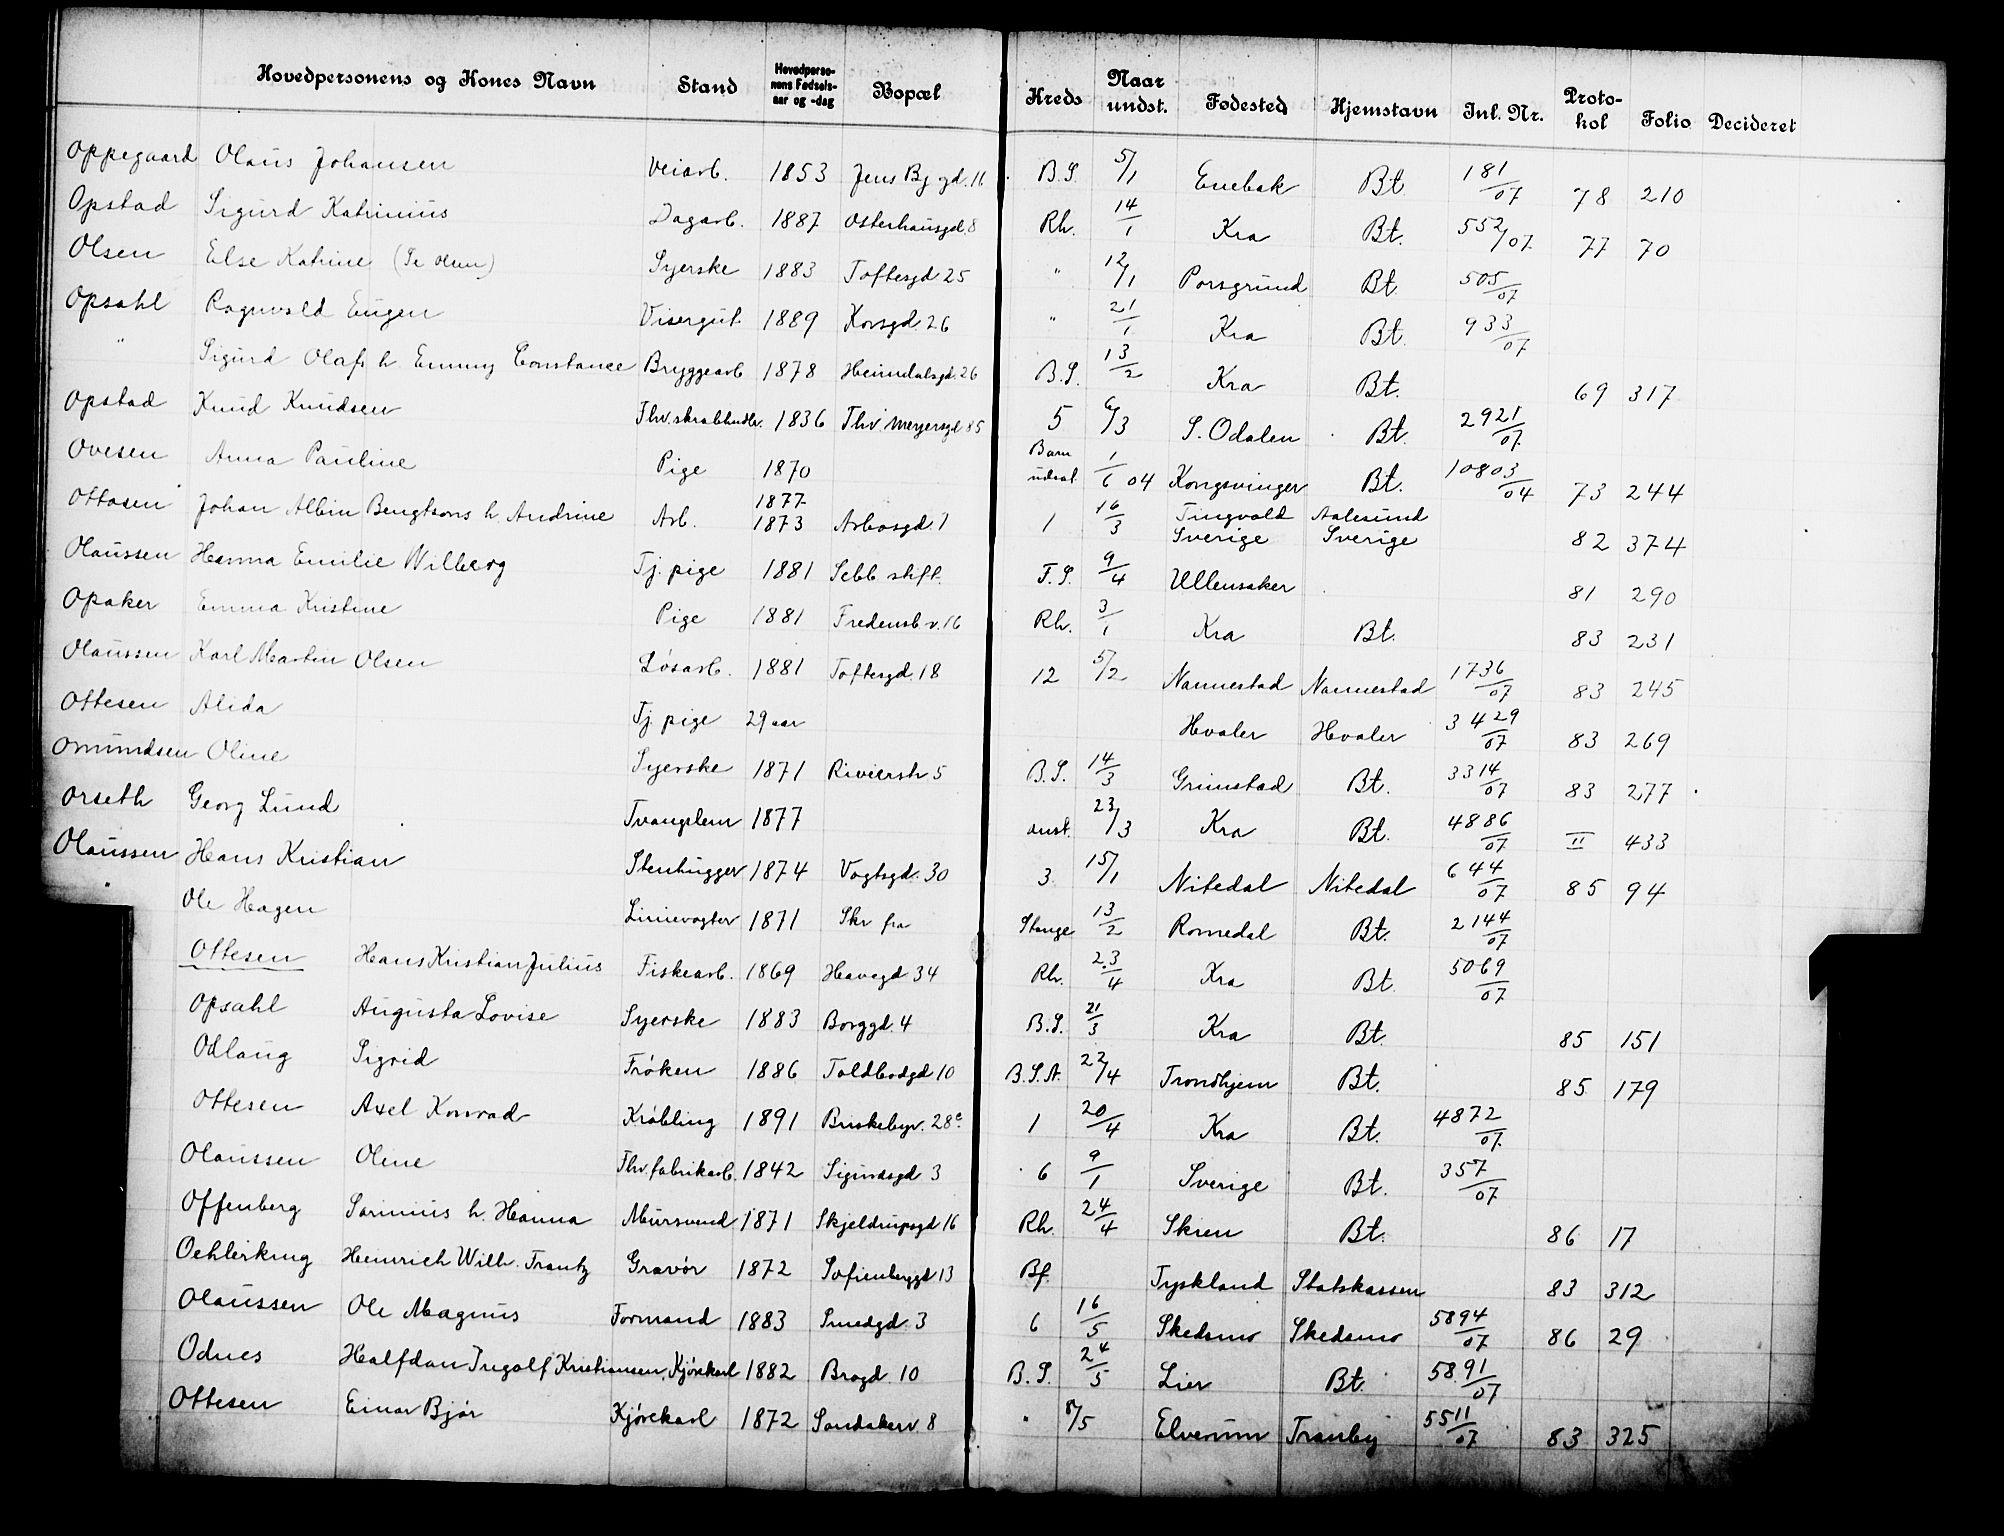 Hovedpersonens og Kones Navn Stand Hovedperso-nens Fødsels-aar og -dag Bopæl Kreds Naar undst. Fødested Hjemstavn Inl. Nr. Proto-kol Folio Decideret
Oppegaard Olaus Johansen Veiarb. 1853 Jens Bj gd. 11 B.S. 5/1 Enebak Bt. 181/07 78 210
Opstad Sigurd Katrinius Dagarb. 1887 Osterhausgd. 8 Rh. 14/1 Kra Bt. 552/07 77 70
Olsen Else Katrine (Se Olsen) Syerske 1883 Toftesgd 25 " 12/1 Porsgrund Bt. 505/07
Opsahl Ragnvald Eugen Visergut 1889 Korsgd. 26 " 21/1 Kra Bt. 933/07
" Sigurd Olaf h Emmy Constance Bryggearb 1878 Heimdalsgd. 26 B.S. 13/2 Kra Bt. 69 317
Opstad Knud Knudsen Fhv. skrabhndlr. 1836 Thv. Meyersgd 85 5 6/3 S. Odalen Bt. 2921/07
Ovesen Anna Pauline Pige 1870 Barn udsat 1/6 04 Kongsvinger Bt. 10803/04 73 244
Ottosen Johan Albin Bengtsons h. Andrine Arb. 1877 1873 Arbosgd. 7 1 16/3 Tingvold Sverige Aalesund Sverige 82 374
Olaussen Hanna Emilie Wilberg Tj. pige 1881 Sebb. stift. F.S. 9/4 Ullensaker 81 290
Opaker Emma Kristine Pige 1881 Fredensb.v. 16 Rh. 3/1 Kra Bt. 83 231
Olaussen Karl Martin Olsen Løsarb. 1881 Toftesgd. 18 12 5/2 Nannestad Nannestad 1736/07 83 245
Ottesen Alida Tj. pige 29 aar Hvaler Hvaler 3429/07 83 269
Omundsen Oline Syerske 1871 Rivierstr 5 B.S. 14/3 Grimstad Bt. 3314/07 83 277
Orseth Georg Lund Tvangslem 1877 anst. 23/3 Kra Bt. 4886/07 II 433
Olaussen Hans Kristian Stenhugger 1874 Vogtsgd. 30 3 15/1 Nitedal Nitedal 644/07 85 94
" Ole Hagen Linievogter 1871 Skr fra Stange 13/2 Romedal Bt. 2144/07
Ottesen Hans Kristian Julius Fiskearb. 1869 Havegd 34 Rh. 23/4 Kra Bt. 5069/07
Opsahl Augusta Lovise Syerske 1883 Borggd. 4 B.S. 21/3 Kra Bt. 85 151
Odlaug Sigrid Frøken 1886 Toldbodgd 10 B.S.A. 22/4 Trondhjem Bt. 85 179
Ottesen Axel Konrad Krøbling 1891 Briskebyv. 28c. 1 20/4 Kra Bt. 4872/07
Olaussen Oline Fhv. fabrikarb. 1842 Sigurdsgd 3 6 9/1 Sverige Bt. 357/07
Offenberg Sørinius h. Hanna Mursvend 1871 Skjeldrupsgd 16 Rh. 24/4 Skien Bt. 86 17
Oehlerking Heinrich Wilh. Frantz Gravør 1872 Sofienberggd 13 Bf. Tyskland Statskassen 83 312
Olaussen Ole Magnus Formand 1883 Smedgd. 3 6 16/5 Skedsmo Skedsmo 5894/07 86 29
Odnes Halfdan Ingolf Kristiansen Kjørekarl 1882 Brogd 10 B.S. 24/5 Lier Bt. 5891/07
Ottesen Einar Bjør Kjørekarl 1872 Sandakerv 8 " 8/5 Elverum Tranby 5511/07 83 325